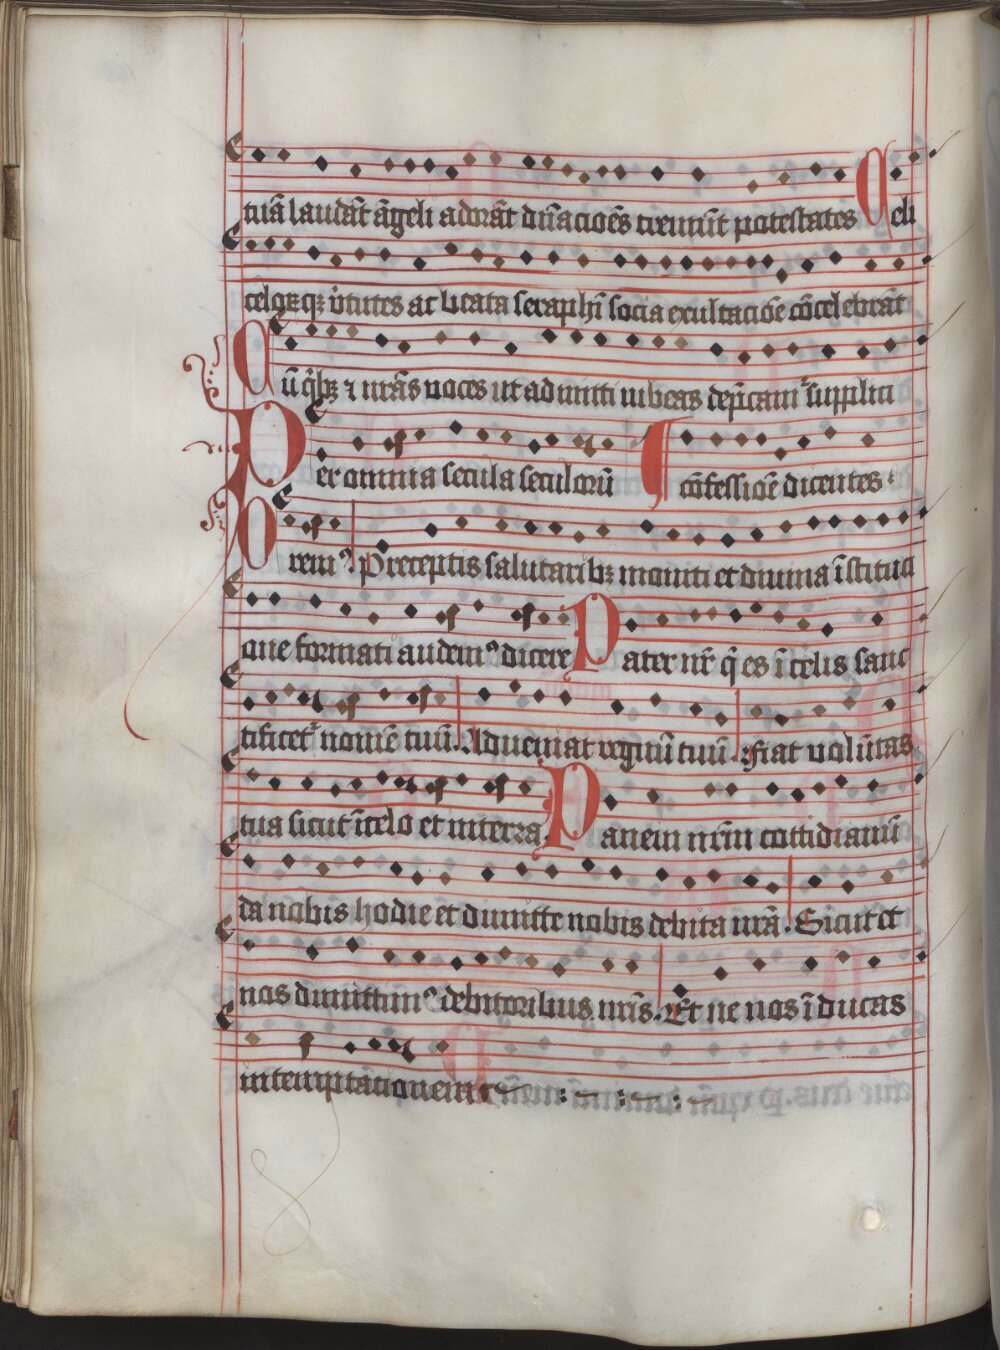 tuā laudāt āgeli adorāt dn̄acioēs tremūt potestates Celi
celoꝝqꝫ v̓tutes ac beata seraphī socia exultacioē cōcelebrāt
Cū qͥbꝫ ⁊ nrās voces ut admitti iubeas dep̄camᷣ supplici
Per omnia secula seculorū ¶ cōfessioē dicentes
Oremꝰ Preceptis salutaribꝫ moniti et diuina īstituci
one formati audemꝰ dicere Pater nr̄ qͥ es ī celis sanc
tificetᷣ nomē tuū. Adueniat regnū tuū. Fiat volūtas
tua sicut ī celo et in terra Panem nrm̄ cottidianū
da nobis hodie et dimitte nobis debita nrā. Sicut et
nos dimittimꝰ debitoribus nrīs. Et ne nos īducas
in temptationem